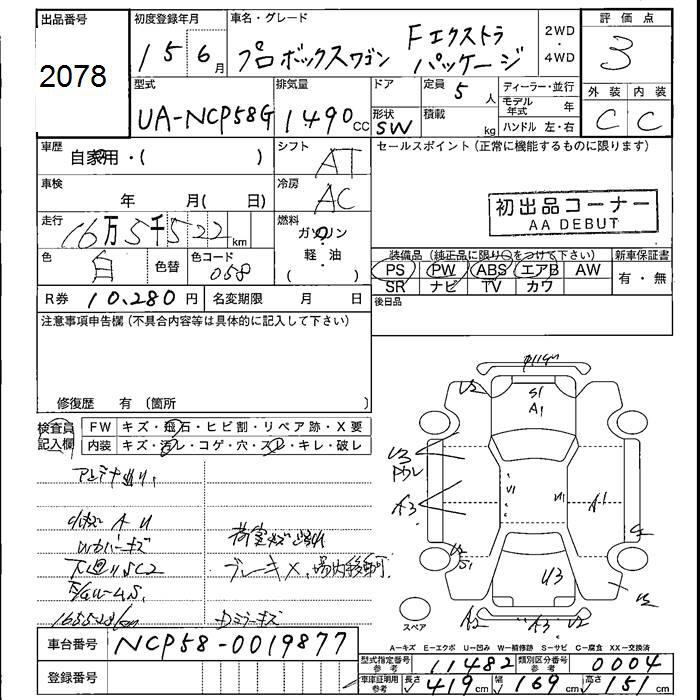 出品番号 2078
初度登録年月 15 6月
車名・グレード プロボックスワゴン Fエクストラパッケージ
2WD・4WD
評価点 3
外装 C 内装 C
型式 UA-NCP58G
排気量 1490cc
ドア 形状 SW
定員 5人
積載 kg
ディーラー・並行
モデル年式 年
ハンドル 左・右
車歴 自家用・( )
シフト AT
セールスポイント(正常に機能するものに限ります)
車検 年 月( 日)
冷房 AC
初出品コーナー
AA DEBUT
走行 16万5千522km
燃料 ガソリン
軽油
( )
色 白 色替 色コード 058
装備品(純正品に限り○をつけて下さい)
PS PW ABS エアB AW
SR ナビ TV カワ
新車保証書
有・無
R券 10,280円 名変期限 月 日
後日品
注意事項申告欄(不具合内容等は具体的に記入して下さい)
修復歴 有(箇所 )
検査員記入欄
FW キズ・飛石・ヒビ割・リペア跡・X要
内装 キズ・汚レ・コゲ・穴・スレ・キレ・破レ
U2
S1
A1
U3
A3
U1
U1
A1
U2
S1
U3
A2
A3
U2
スペア
A-キズ E-エクボ U-凹み W-補修跡 S-サビ C-腐食 XX-交換済
車台番号 NCP58-0019877
登録番号
型式指定番号 参考 11482 類別区分番号 参考 0004
車庫証明用 参考 長さ 419cm 幅 169cm 高さ 151cm